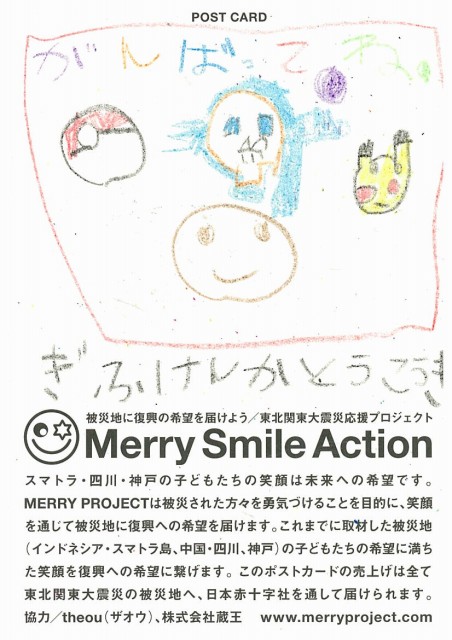 POST CARD
がんばってね。
ぎふけんかとうこうき
被災地に復興の希望を届けよう／東北関東大震災応援プロジェクト
Merry Smile Action
スマトラ・四川・神戸の子どもたちの笑顔は未来への希望です。
MERRY PROJECTは被災された方々を勇気づけることを目的に、笑顔
を通じて被災地に復興への希望を届けます。これまでに取材した被災地
（インドネシア・スマトラ島、中国・四川、神戸）の子どもたちの希望に満ち
た笑顔を復興への希望に繋げます。このポストカードの売上げは全て
東北関東大震災の被災地へ、日本赤十字社を通して届けられます。
協力／theou（ザオウ）、株式会社蔵王 www.merryproject.com